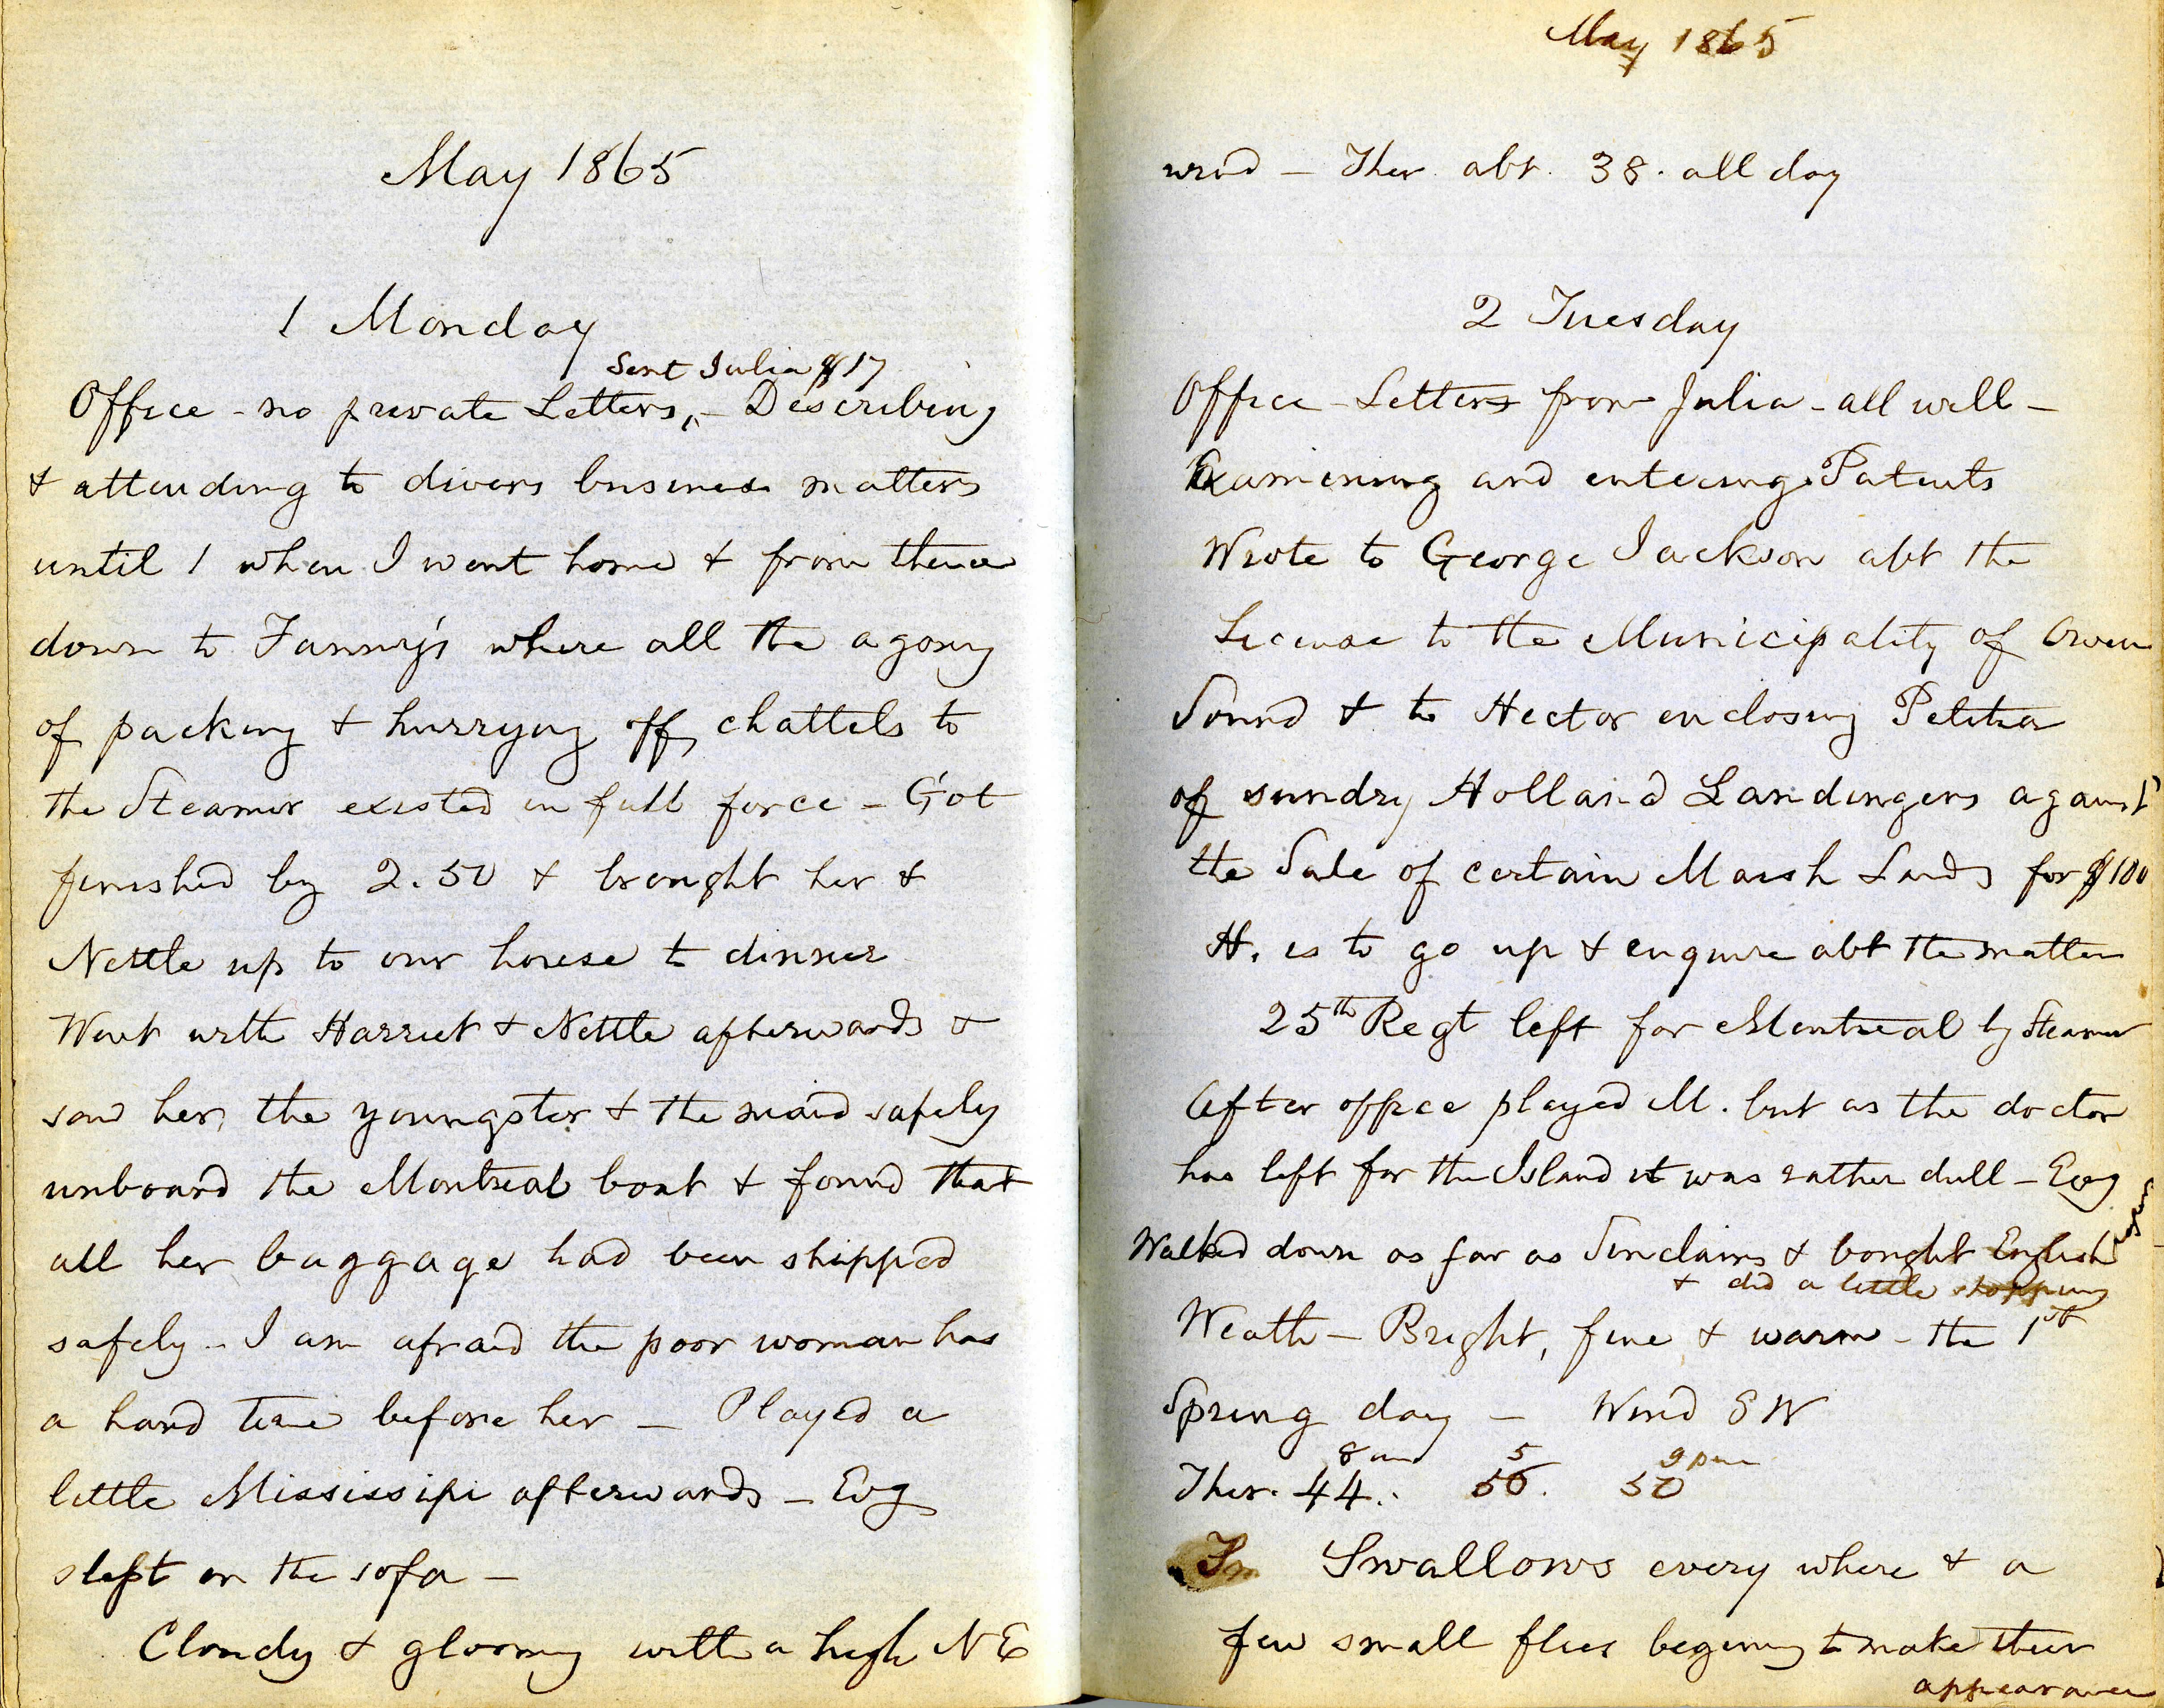 May 1865
1 Monday
Sent Julia $17
Office - no private Letters, - Describing
& attending to divers business matters
until 1 when I went home & from thence
down to Fanny's where all the agony
of packing & hurrying off chattels to
the Steamer existed in full force - Got
finished by 2.50 & brought her &
Nettle up to our house to dinner
Went with Harriet & Nettle afterwards &
saw her, the youngster & the maid safely
unboard the Montreal boat & found that
all her baggage had been shipped
safely - I am afraid the poor woman has
a hard time before her - Played a
little Mississipi afterwards - Evg
slept on the sofa -
Cloudy & gloomy with a high N E
May 1865
wind - Ther. abt. 38. all day
2 Tuesday
Office - Letters from Julia - all well -
Examining and entering Patents
Wrote to George Jackson abt the
License to the Municipality of Owen
Sound & to Hector enclosing Petition
of sundry Holland Landingers against
the Sale of certain Marsh Lands for $100
H. is to go up & enquire abt the matter
25th Regt left for Montreal by Steamer
After office played M. but as the doctor
has left for the Island it was rather dull - Evg
Walked down as far as Sinclairs & bought English
& did a little shopping
Weath - Bright, fine & warm - the 1st
Spring day - Wind S W
8 am 5 9 pm
Ther. 44. 56. 50
Swallows every where & a
few small flies begining to make their
appearance